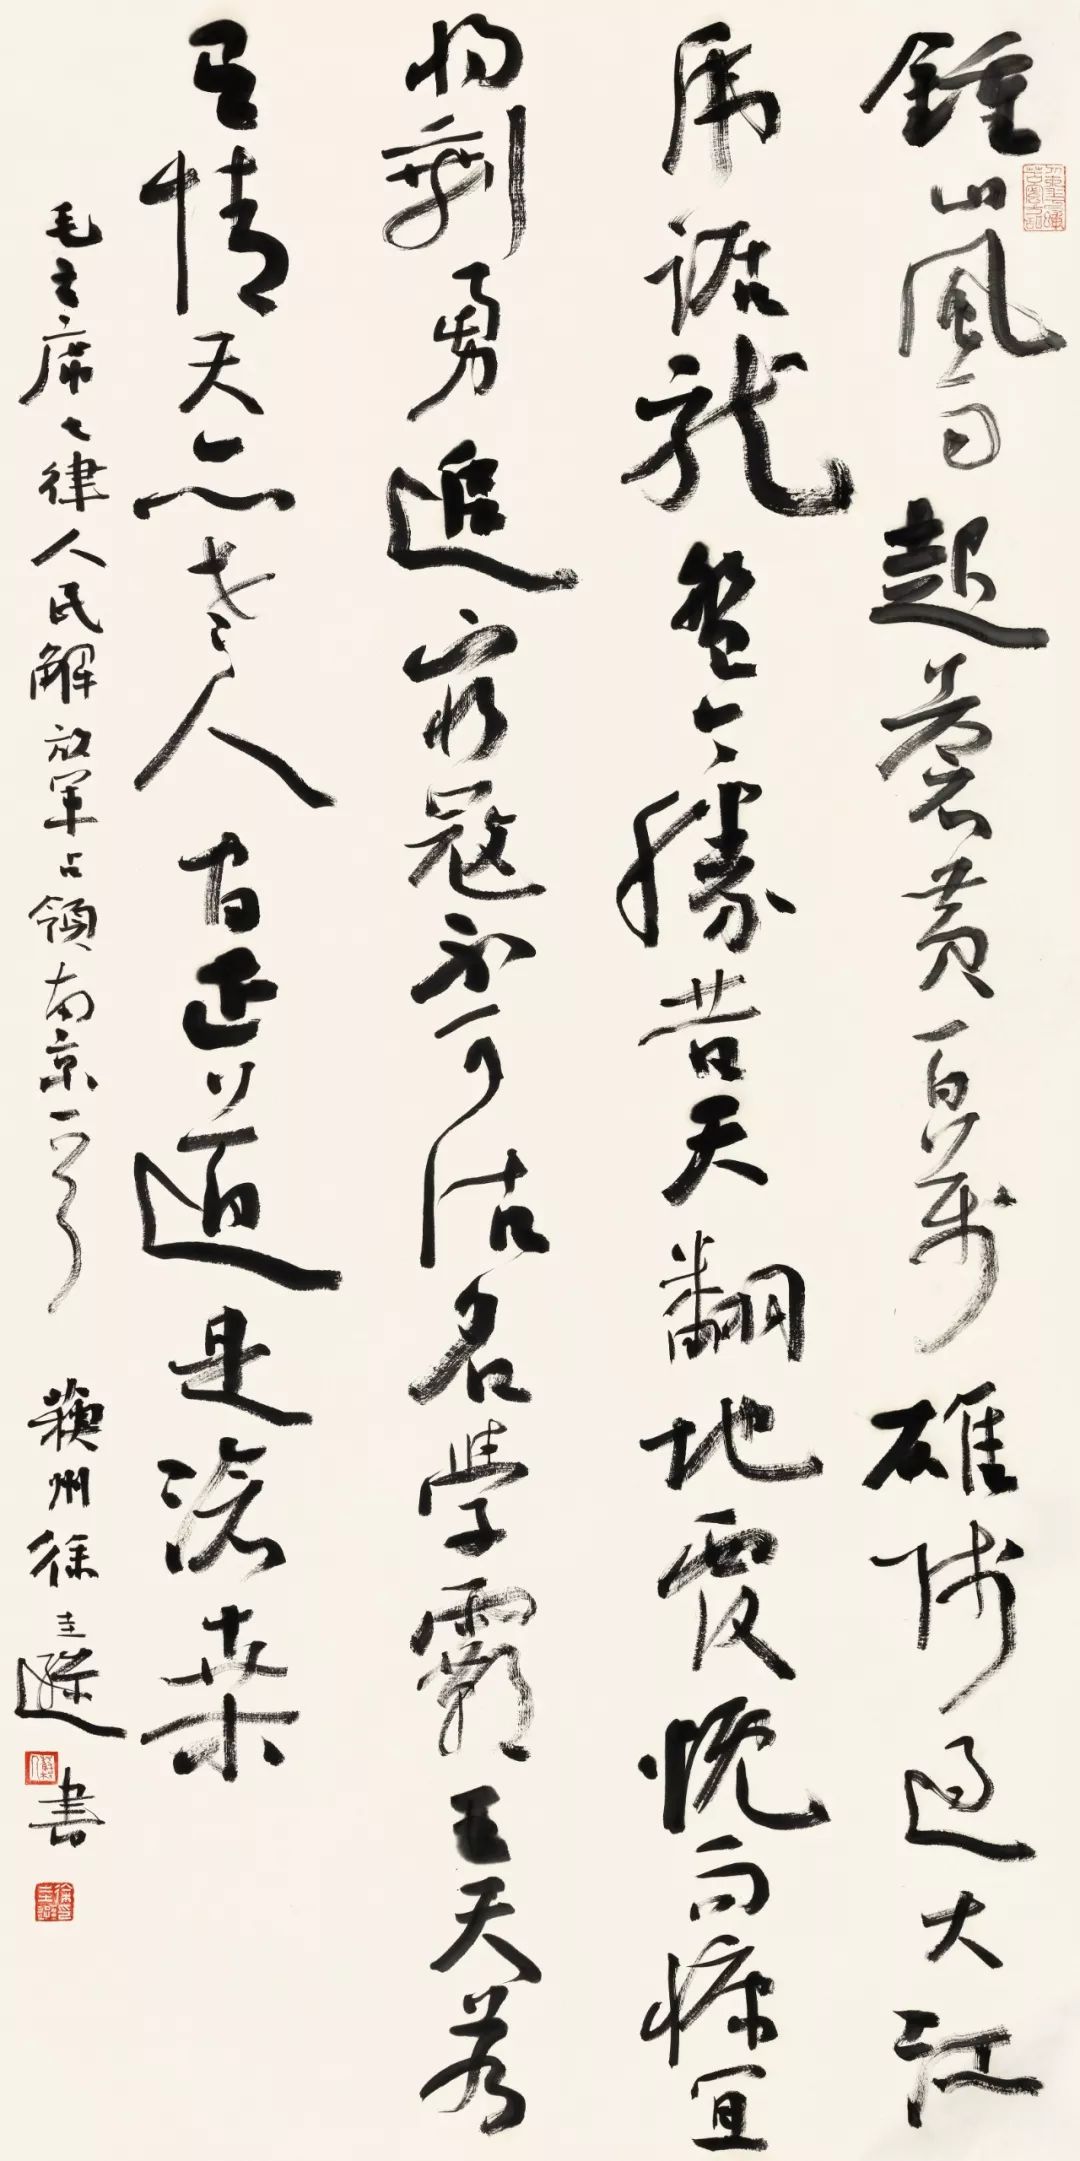 鍾山風雨起蒼黃百萬雄師過大江
虎踞龍盤今勝昔天翻地覆慨而慷宜
將剩勇追窮寇不可沽名學霸王天若
有情天亦老人間正道是滄桑
毛主席七律人民解放軍占領南京一首 蘇州徐圭遜書